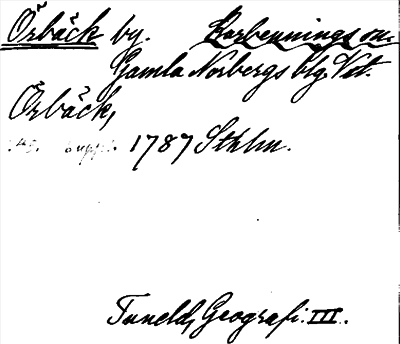 Örbäck by. Karbennings sn.
Gamla Norbergs blg. Vstl.
Örbäck,
1787 Sthlm.
Tuneld, Geografi. III.